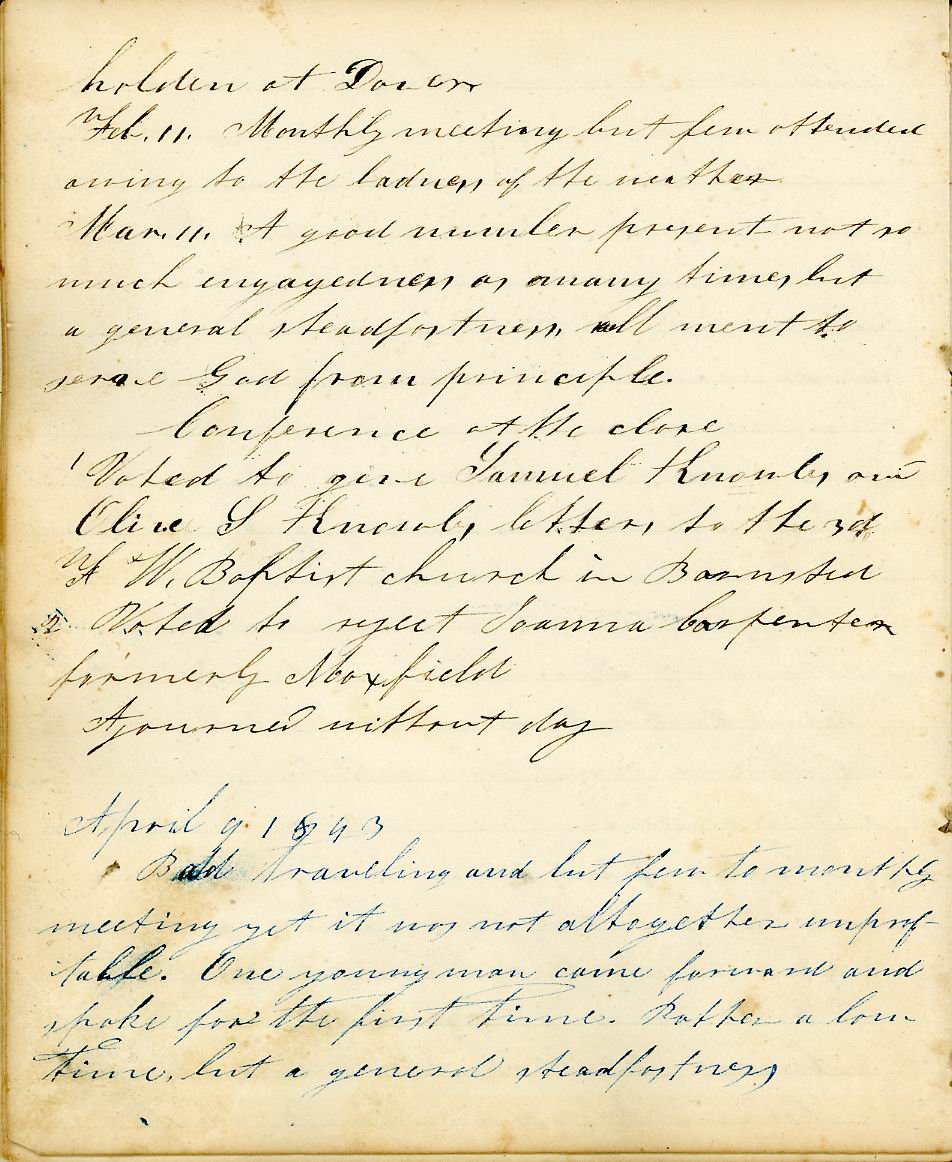 holden at Dover
Feb. 11. Monthly meeting but few attended
owing to the badness of the weather
Mar. 11. A good number present not so
much engagedness as many times but
a general steadfastness, all ment to
serve God from principle.
Conference at the close
1 Voted to give Samuel Knowls and
Olive S Knowls letters to the 3d
F W. Baptist church in Barnsted
2 Voted to reject Joanna Carpenter
formerly Maxfield
Ajourned without day
April 9. 1843
Bald traveling and but few to monthly
meeting yet it was not altogether unprof-
table. One young man came forward and
spoke for the first time. Rather a low
time, but a general steadfastness